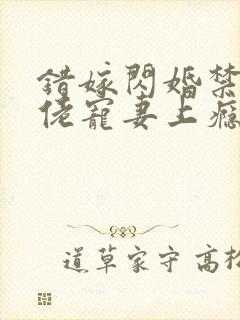 錯嫁閃婚禁
佬寵妻上癮
道草家守 高松